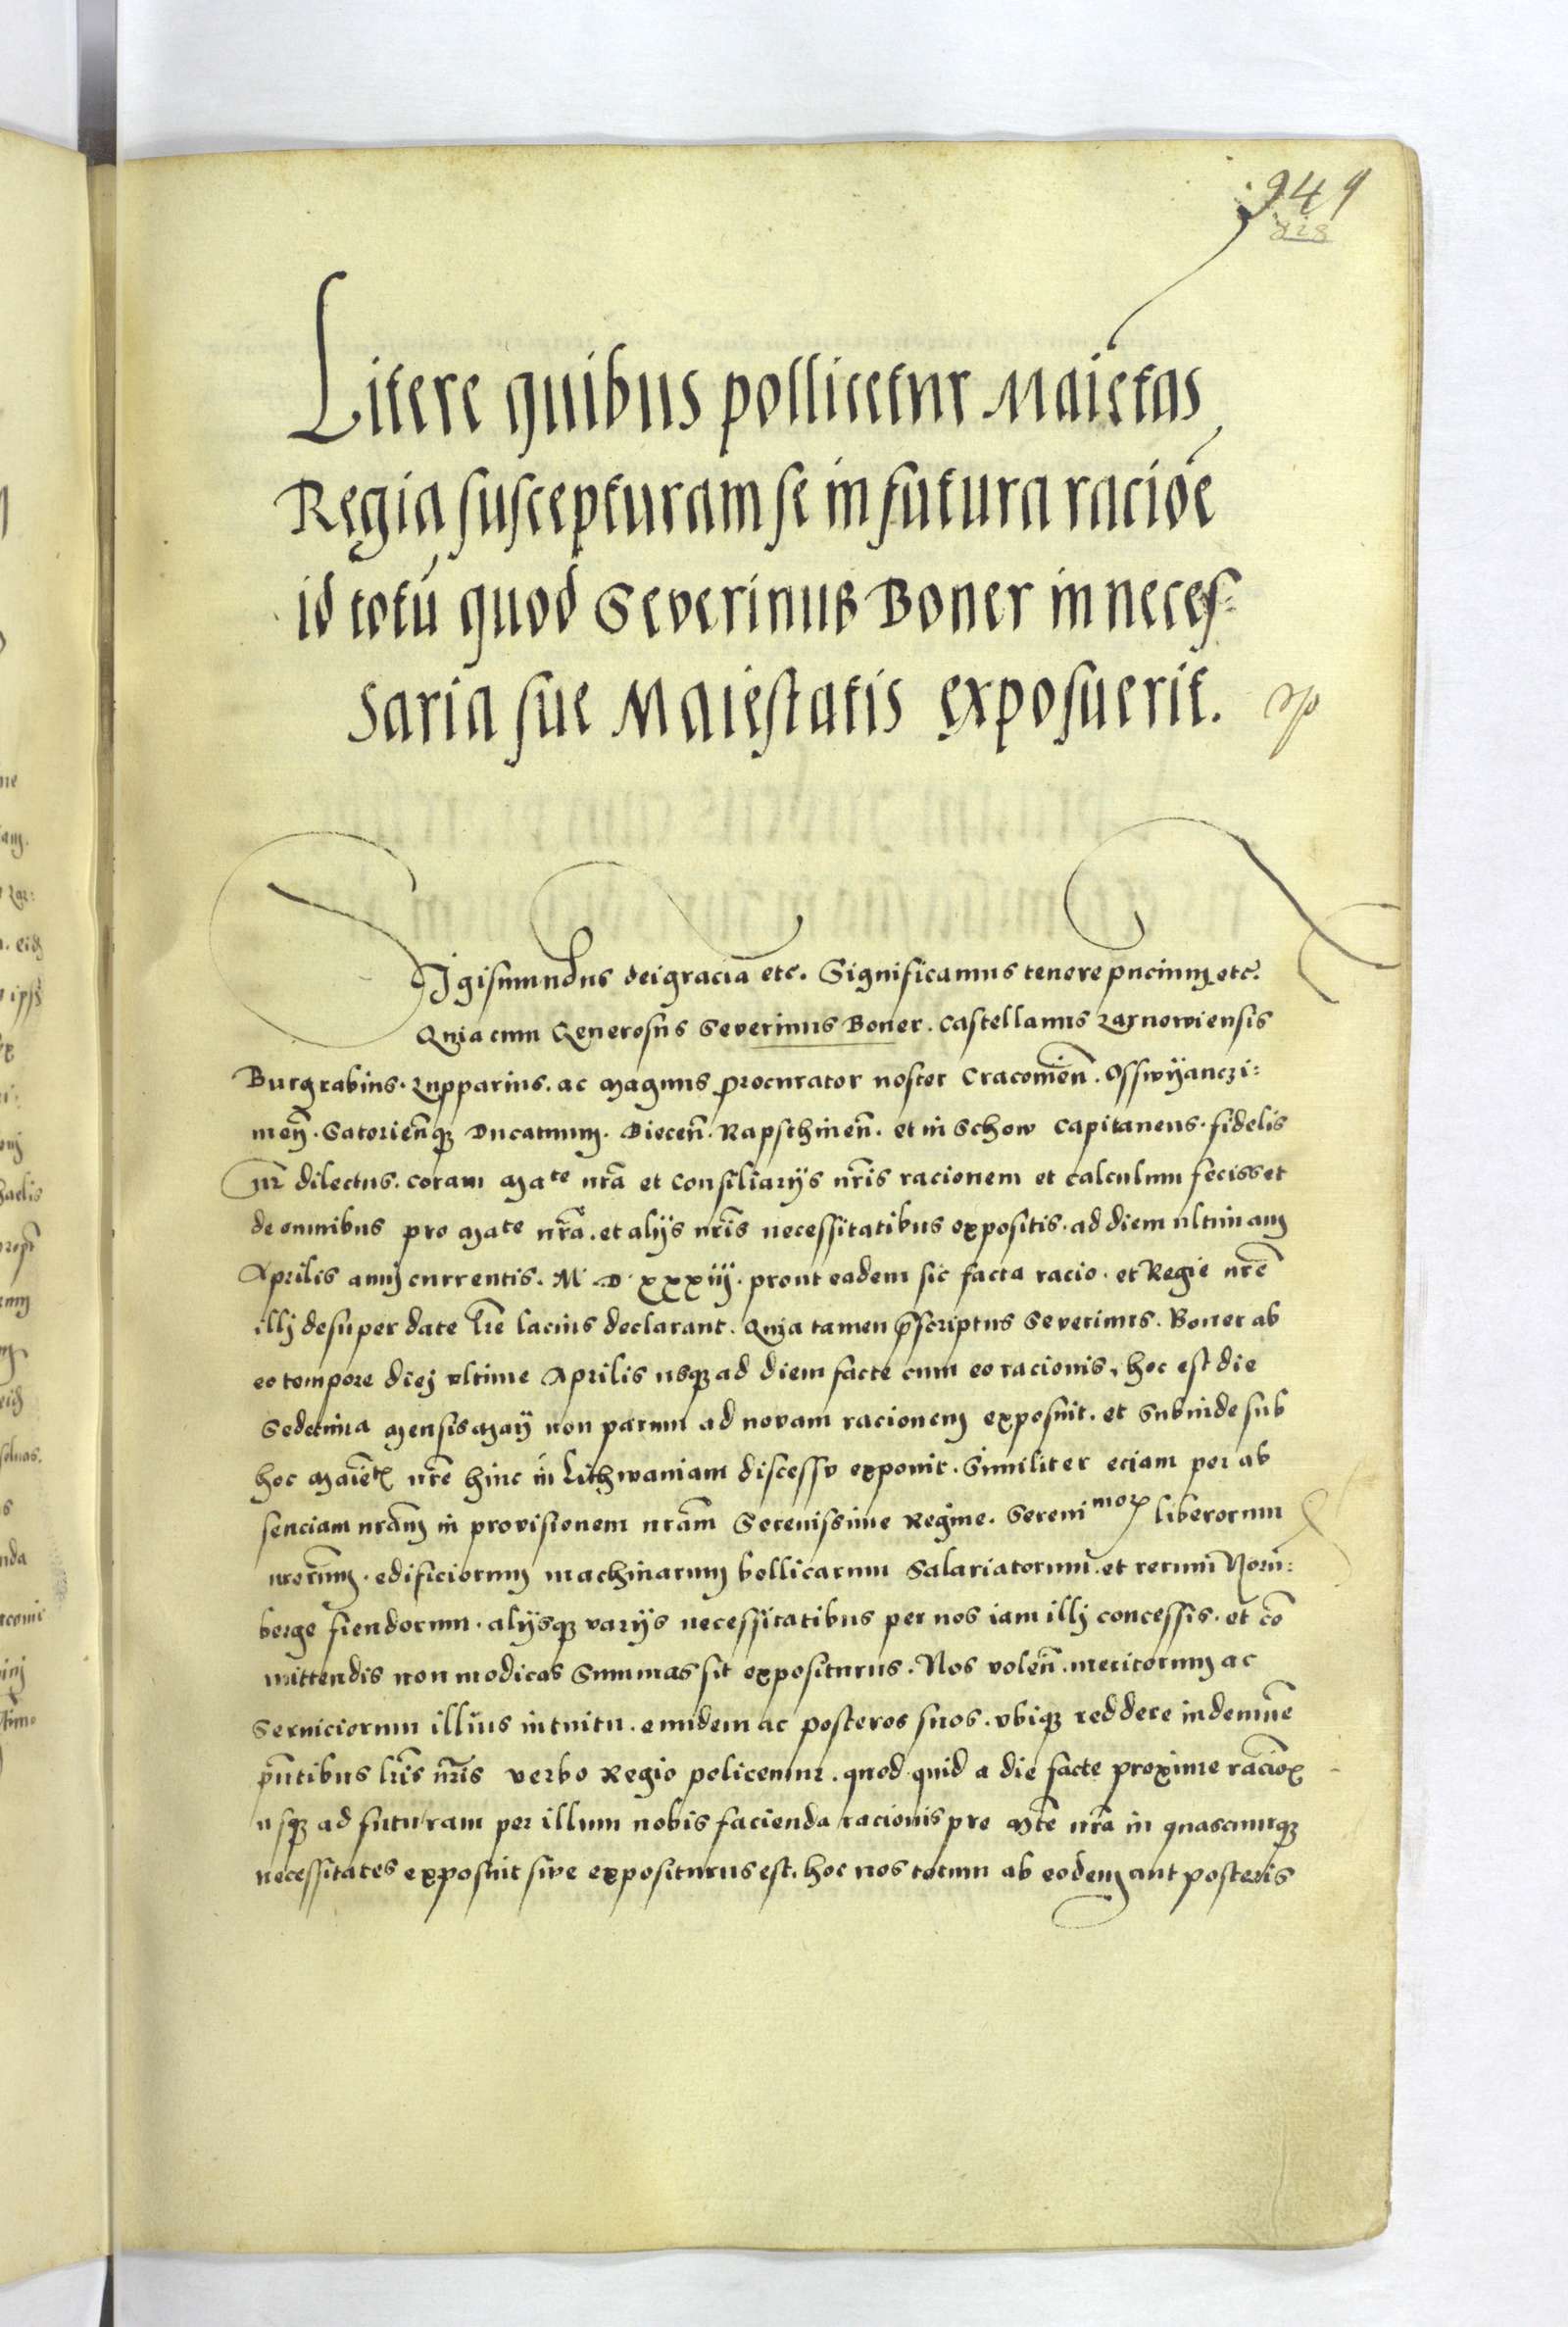 949
828
Litere quibus pollicetur Maietas
Regia suscepturam se in futura racioē
id totū quod Severinus Boner in neces=
saria sue Maiestatis exposuerit.
Sigismundus dei gracia etc. Significamus tenore pn̄cium etc.
Quia cum Generosus Severinus Boner. Castellanus Zarnowiensis
Burgrabius. Zupparius. ac Magnus procurator noster Cracowien̄. Osswyanczi=
men̄. Zatorien̄q3 Ducatuum. Biecen̄. Rapschinen̄. et in Schow Capitaneus. fidelis
nr̄ dilectus. coram Mate nr̄a et Consiliarijs nr̄is racionem et calculum fecisset
de omnibus pro Mate nr̄a. et alijs nr̄is necessitatibus expositis. ad diem ultimam
Aprilis annj currentis. M. D. xxxiij. prout eadem sic facta racio. et Regie nr̄e
illj desuper date lr̄e lacius declarant. Quia tamen p̄scriptus Severinus. Boner ab
eo tempore diej ultime Aprilis usq3 ad diem facte cum eo racionis, hoc est die
Sedecima mensis Maij non parum ad novam racionem exposuit. et Subinde sub
hoc Maiet̄ nr̄e hinc in Lithwaniam discessu exponit. Similiter eciam per ab
senciam nr̄am in provisionem nr̄am Serenissime Regine. Sereni mor̄ liberorum
nr̄orum. edificiorum machinarum bellicarum Salariatorum. et rerum Norn=
berge fiendorum. alijsq3 varijs necessitatibus per nos iam illj concessis. et cō
mittendis non modicas Summas sit expositurus. Nos volen̄. meritorum ac
Serviciorum illius intuitu. eundem ac posteros suos. ubiq3 reddere indemnē
pn̄tibus lr̄is nr̄is verbo Regio policemur. quod quid a die facte proxime raciōr̄
usq3 ad futuram per illum nobis facienda racionis pro Mte nr̄a in quascumq3
necessitates exposuit sive expositurus est. hoc nos totum ab eodem aut posteris